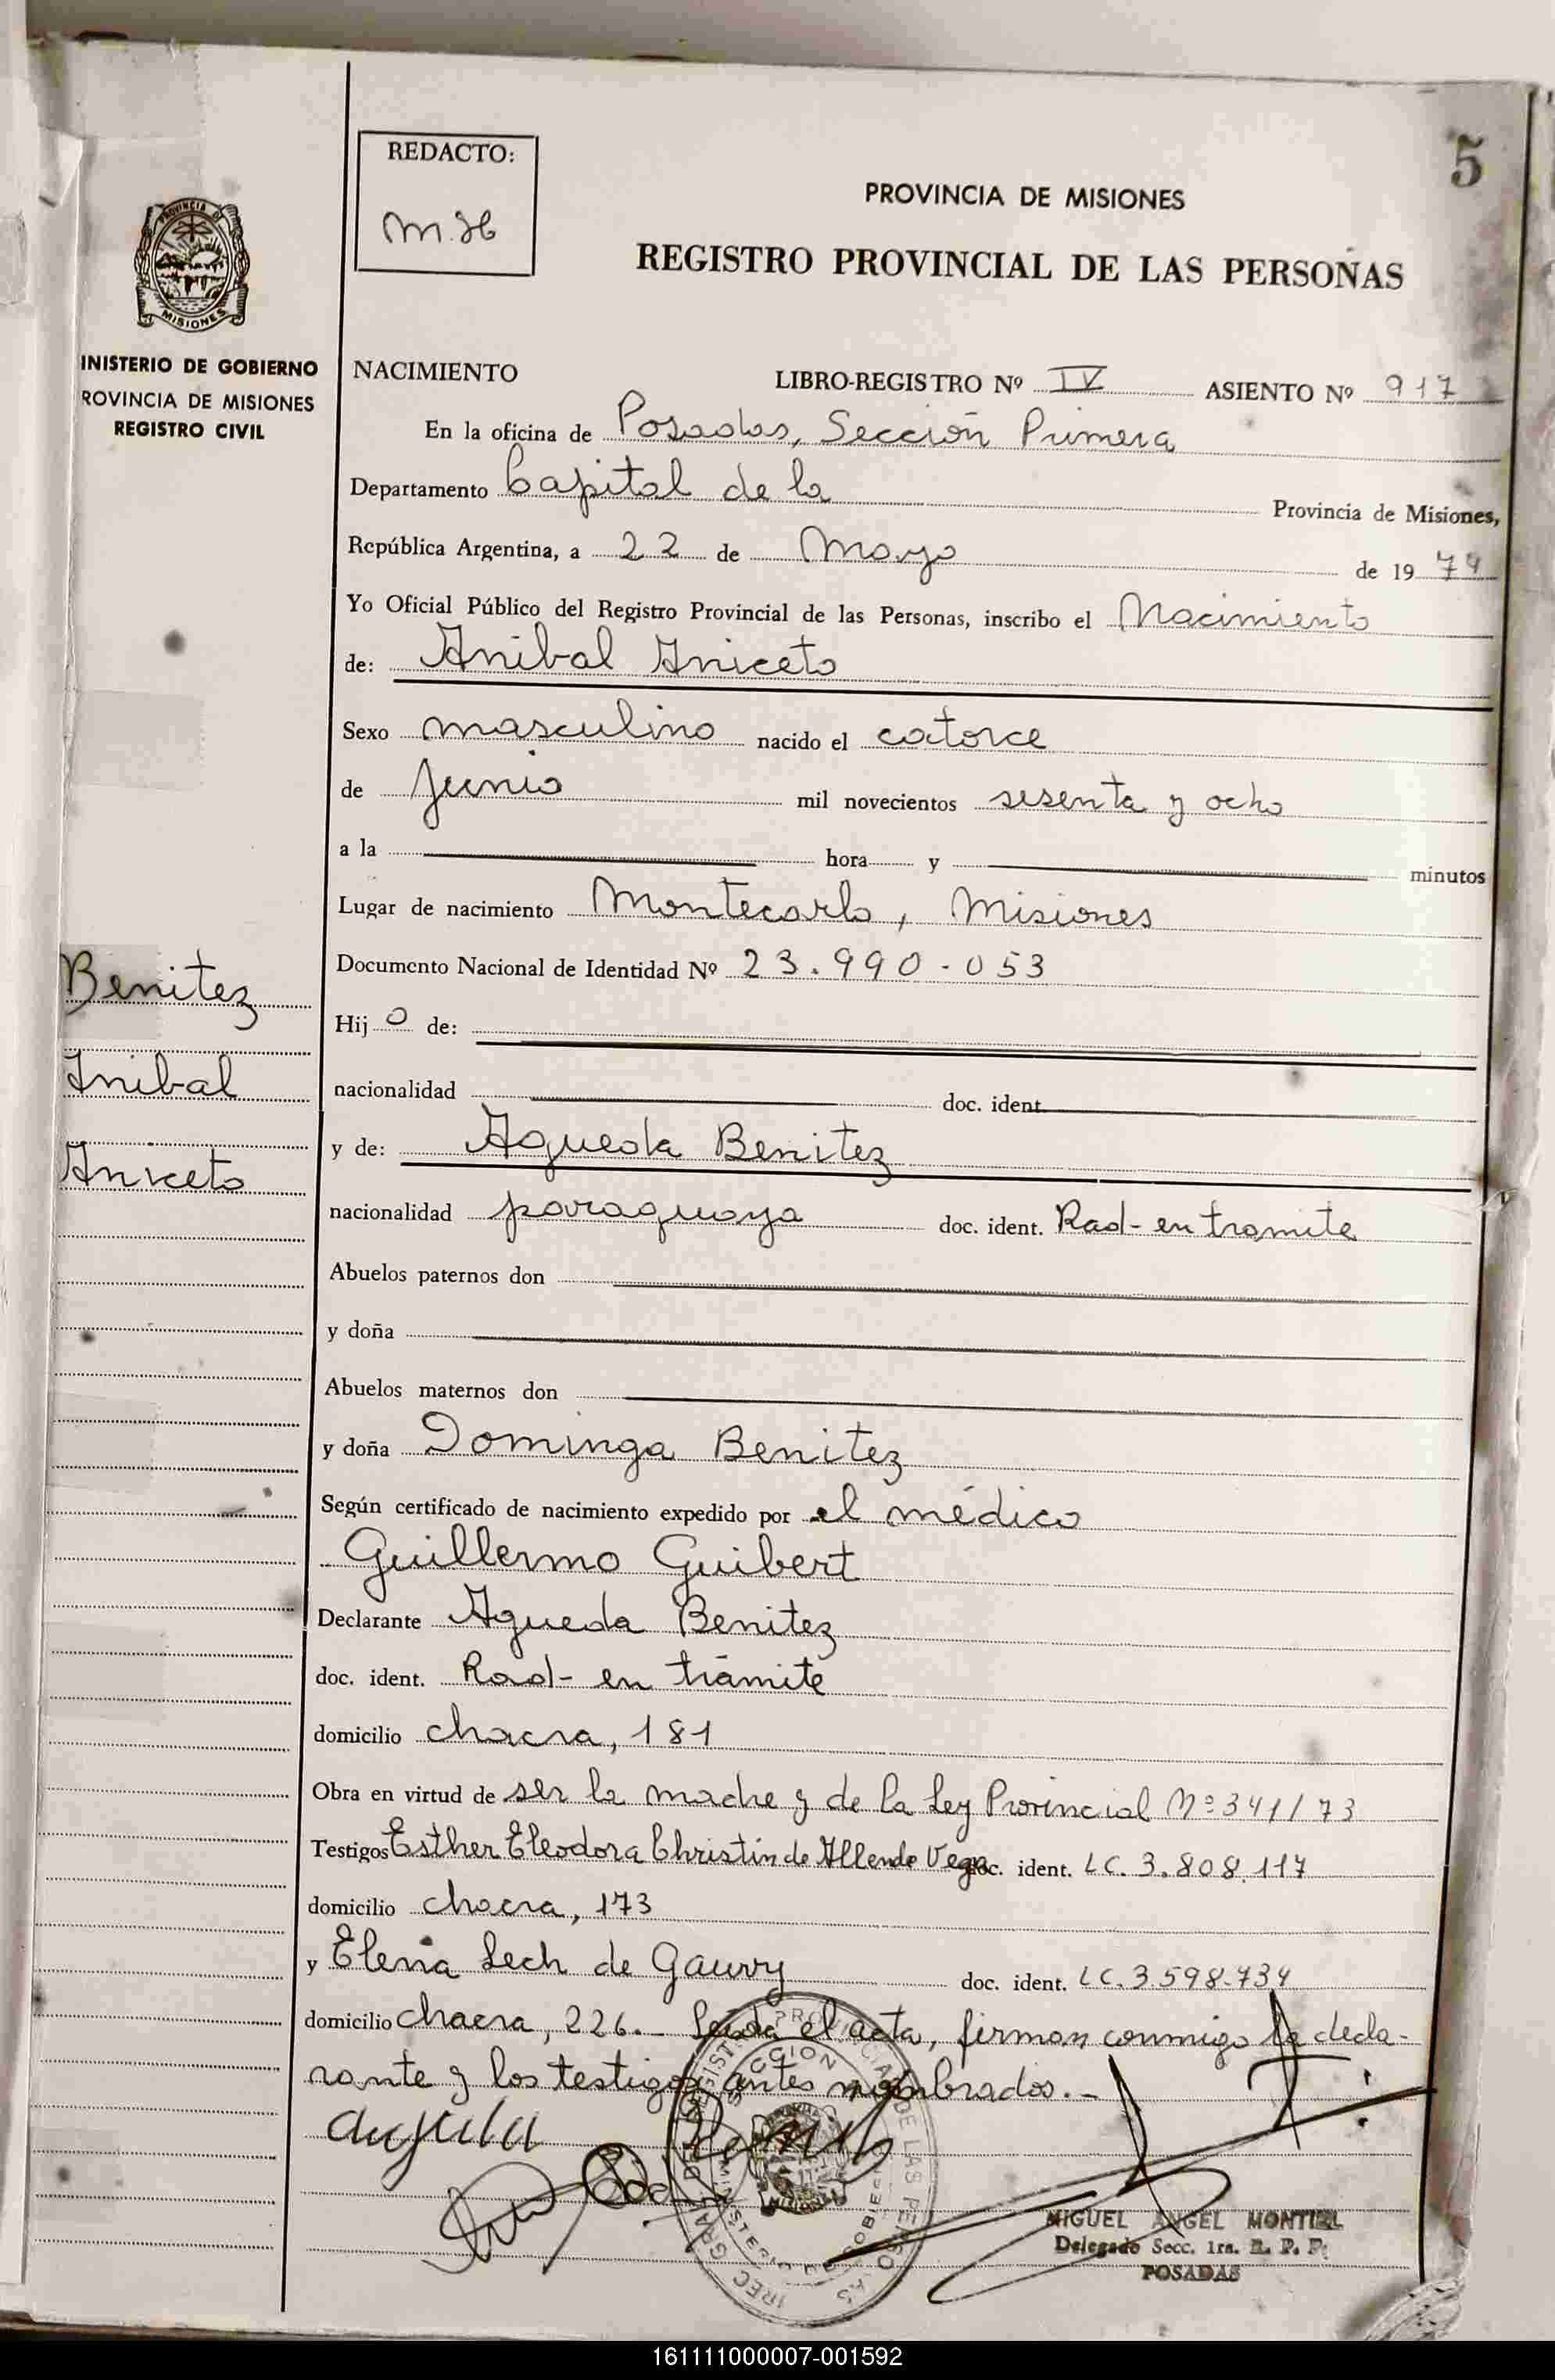 5
REDACTO:
m.H
PROVINCIA DE MISIONES
REGISTRO PROVINCIAL DE LAS PERSONAS
PROVINCIA DE
MISIONES
INISTERIO DE GOBIERNO
ROVINCIA DE MISIONES
REGISTRO CIVIL
NACIMIENTO LIBRO-REGISTRO Nº IV ASIENTO Nº 917
En la oficina de Posadas, Sección Primera
Departamento Capital de la Provincia de Misiones,
República Argentina, a 22 de Mayo de 19 79
Yo Oficial Público del Registro Provincial de las Personas, inscribo el Nacimiento
de: Anibal Aniceto
Sexo masculino nacido el catorce
de junio mil novecientos sesenta y ocho
a la hora y minutos
Lugar de nacimiento Montecarlo, Misiones
Documento Nacional de Identidad Nº 23.990.053
Benitez
Anibal
Aniceto
Hij o de:
nacionalidad doc. ident.
y de: Agueda Benitez
nacionalidad paraguaya doc. ident. Rad- en tramite
Abuelos paternos don
y doña
Abuelos maternos don
y doña Dominga Benitez
Según certificado de nacimiento expedido por el médico
Guillermo Guibert
Declarante Agueda Benitez
doc. ident. Rad- en trámite
domicilio chacra, 181
Obra en virtud de ser la madre y de la Ley Provincial Nº 341/73
Testigos Esther Eleodora Christin de Allende Vega doc. ident. LC. 3.808.117
domicilio chacra, 173
y Elena Lech de Gauvry doc. ident. LC. 3.598.734
domicilio chacra, 226.- Leída el acta, firman conmigo la decla-
rante y los testigos antes nombrados.-
MIGUEL ANGEL MONTIEL
Delegado Secc. 1ra. R. P. P.
POSADAS
161111000007-001592